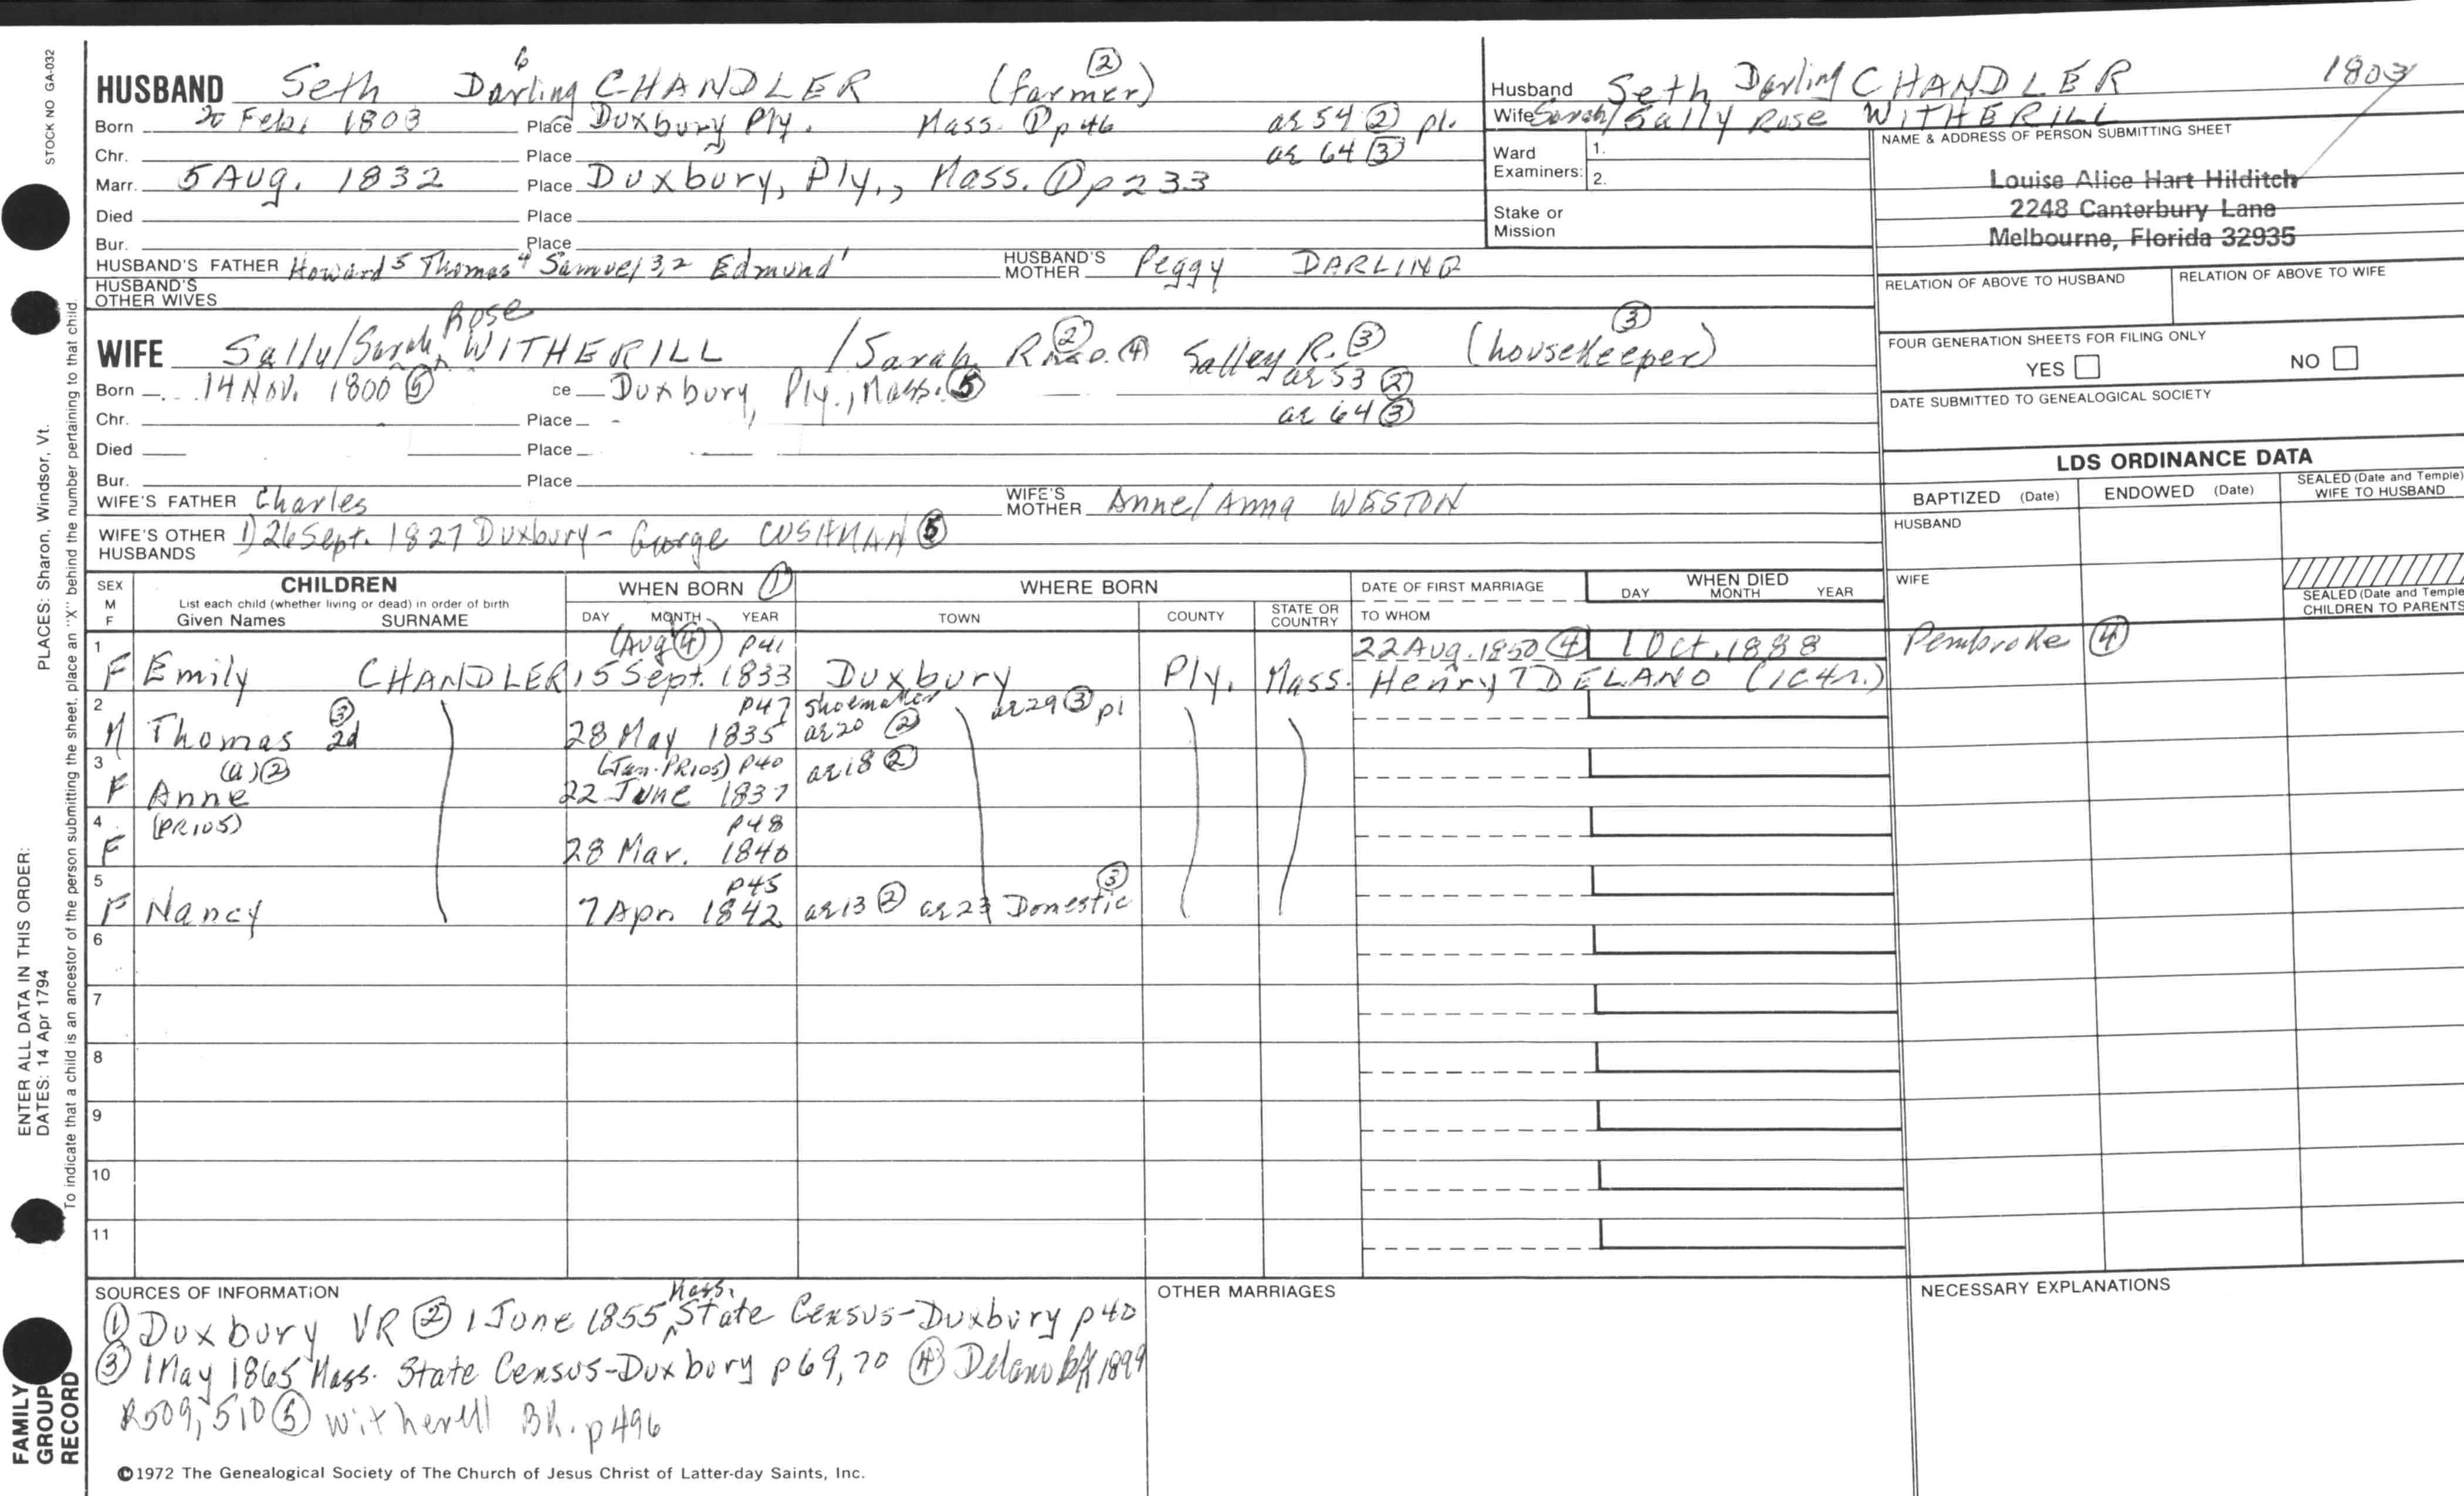 STOCK NO GA-032
PLACES: Sharon, Windsor, Vt.
ENTER ALL DATA IN THIS ORDER:
DATES: 14 Apr 1794
To indicate that a child is an ancestor of the person submitting the sheet, place an "X" behind the number pertaining to that child.
FAMILY GROUP RECORD
HUSBAND Seth Darling 6 CHANDLER (farmer) ②
Born 20 Feb. 1803 Place Duxbury Ply. Mass. ① p46 ae 54 ② pl.
Chr. Place ae 64 ③
Marr. 5 Aug. 1832 Place Duxbury, Ply., Mass. ① p233
Died Place
Bur. Place
HUSBAND'S FATHER Howard 5 Thomas 4 Samuel 3,2 Edmund 1 HUSBAND'S MOTHER Peggy DARLING
HUSBAND'S OTHER WIVES
WIFE Sally/Sarah Rose WITHERILL /Sarah R ② ④ Salley R. ③ (housekeeper) ③
Born 14 Nov. 1800 ⑤ ce Duxbury, Ply., Mass. ⑤ ae 53 ②
Chr. Place ae 64 ③
Died Place
Bur. Place
WIFE'S FATHER Charles WIFE'S MOTHER Anne/Anna WESTON
WIFE'S OTHER HUSBANDS 1) 26 Sept. 1827 Duxbury - George CUSHMAN ⑤
Husband Seth Darling CHANDLER 1803
Wife Sarah/Sally Rose WITHERILL
Ward Examiners: 1.
2.
Stake or Mission
NAME & ADDRESS OF PERSON SUBMITTING SHEET
Louise Alice Hart Hilditch
2248 Canterbury Lane
Melbourne, Florida 32935
RELATION OF ABOVE TO HUSBAND RELATION OF ABOVE TO WIFE
FOUR GENERATION SHEETS FOR FILING ONLY
YES NO
DATE SUBMITTED TO GENEALOGICAL SOCIETY
LDS ORDINANCE DATA
BAPTIZED (Date) ENDOWED (Date) SEALED (Date and Temple) WIFE TO HUSBAND
HUSBAND
WIFE
SEALED (Date and Temple) CHILDREN TO PARENTS
SEX M F CHILDREN WHEN BORN ① WHERE BORN DATE OF FIRST MARRIAGE WHEN DIED
List each child (whether living or dead) in order of birth
Given Names SURNAME DAY MONTH YEAR TOWN COUNTY STATE OR COUNTRY TO WHOM DAY MONTH YEAR
1 (Aug ④) p41 22 Aug. 1850 ④ 1 Oct. 1888 Pembroke ④
F Emily CHANDLER 15 Sept. 1833 Duxbury Ply. Mass. Henry T DELANO (1C4r.)
2 ③ p47 shoemaker ae 29 ③ pl
M Thomas 2d 28 May 1835 ae 20 ②
3 (a) ② (Jan. PR105) p40 ae 18 ②
F Anne 22 June 1837
4 (PR105) p48
F 28 Mar. 1840
5 p45 ③
F Nancy 7 Apr. 1842 ae 13 ② ae 23 Domestic
6
7
8
9
10
11
SOURCES OF INFORMATION
① Duxbury VR ② 1 June 1855 Mass. State Census-Duxbury p40
③ 1 May 1865 Mass. State Census-Duxbury p69,70 ④ Delano Bk 1899
R509, 510 ⑤ Witherell Bk. p496
OTHER MARRIAGES
NECESSARY EXPLANATIONS
©1972 The Genealogical Society of The Church of Jesus Christ of Latter-day Saints, Inc.